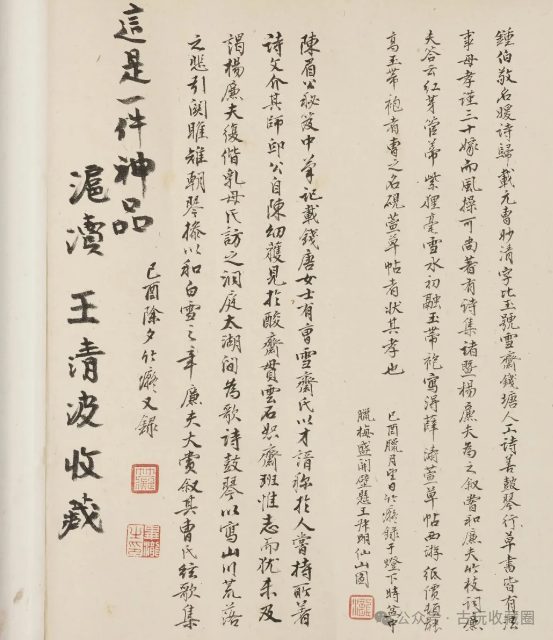 鍾伯敬名媛詩歸載元曹妙清字比玉號雪齋錢塘人工詩善鼓琴行草書皆有法
事母孝謹三十嫁而風操可尚著有詩集諸暨楊廉夫為之叙嘗和廉夫竹枝詞廉
夫答云紅芽管蒂紫狸毫雪水初融玉帶袍寫得薛濤萱草帖西湖紙價頓
高玉帶袍者曹之名硯萱草帖者状其孝也
己酉臘月望日竹癡錄于燈下時盆中
臘梅盛開壁懸王拜明仙山圖
陳眉公秘笈中筆記載錢唐女士有曹雪齋氏以才諝称於人嘗持所著
詩文介其師邱公自陳幼獲見於酸齋貫雲石恕齋班惟志而犹未及
謁楊廉夫復偕乳母氏訪之洞庭太湖間為歌詩鼓琴以寫山川荒落
之悲引関雎雉朝琴操以和白雪之章廉夫大賞叙其曹氏絃歌集
己酉除夕竹癡又錄
這是一件神品
滬瀆 王清波收藏
公众号 古玩收藏圈